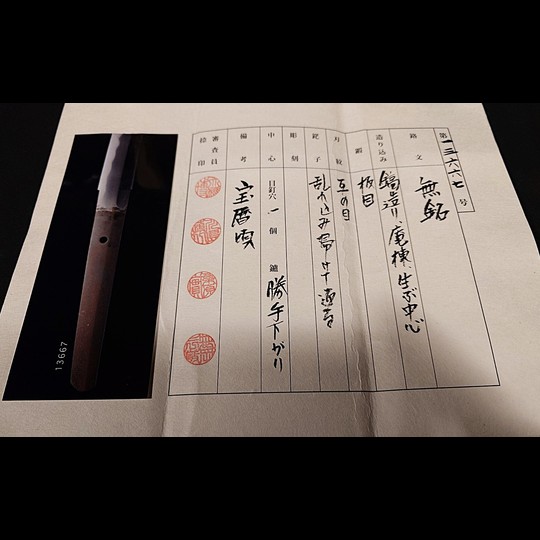 第一三六六七号
銘文 無銘
造り込み 鎬造り、庵棟、生ぶ中心
鍛 板目
刃紋 互の目
鋩子 乱れ込み掃けて返る
彫刻
中心 目釘穴 一個 鑢 勝手下がり
備考 宝暦頃
審査員
捺印
13667